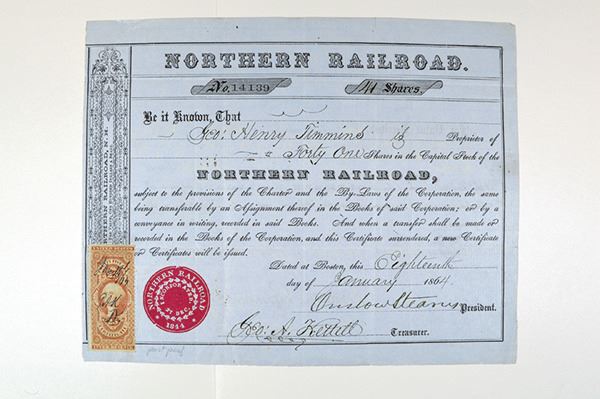 NORTHERN RAILROAD.
No. 14139
41 Shares.
Be it Known, That
Geo: Henry Timmins is Proprietor of
Forty One Shares in the Capital Stock of the
NORTHERN RAILROAD,
subject to the provisions of the Charter and the By-Laws of the Corporation, the same
being transferable by an Assignment thereof in the Books of said Corporation; or by a
conveyance in writing, recorded in said Books. And when a transfer shall be made or
recorded in the Books of the Corporation, and this Certificate surrendered, a new Certificate
or Certificates will be issued.
Dated at Boston, this Eighteenth
day of January 1864.
Onslow Stearns President.
Geo: A. Kettell Treasurer.
NORTHERN RAILROAD, N.H.
NORTHERN RAILROAD
INCORPORATED
27 DEC.
1844
UNITED STATES